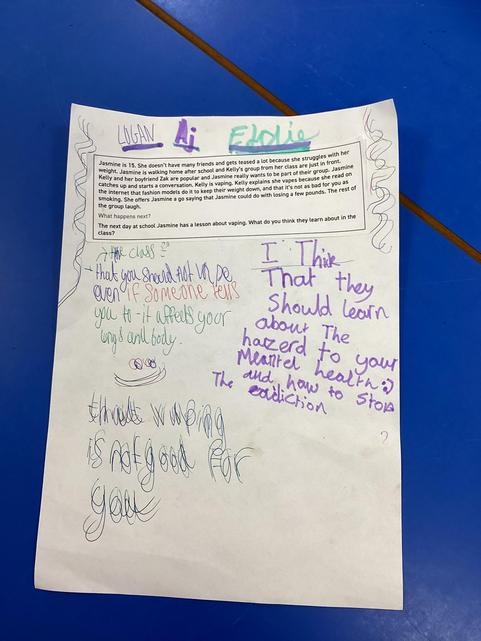 LOGAN Aj Elodie
Jasmine is 15. She doesn't have many friends and gets teased a lot because she struggles with her
weight. Jasmine is walking home after school and Kelly's group from her class are just in front.
Kelly and her boyfriend Zak are popular and Jasmine really wants to be part of their group. Jasmine
catches up and starts a conversation. Kelly is vaping. Kelly explains she vapes because she read on
the internet that fashion models do it to keep their weight down, and that it's not as bad for you as
smoking. She offers Jasmine a go saying that Jasmine could do with losing a few pounds. The rest of
the group laugh.
What happens next?
The next day at school Jasmine has a lesson about vaping. What do you think they learn about in the
class?
class
that you should not vape
even if someone tells
you to - it affects your
lungs and body.
thats vaping
is not good for
you
I Think
That they
Should learn
about The
hazerd to your
Meantel health :)
and how to Stop
The eadiction
?